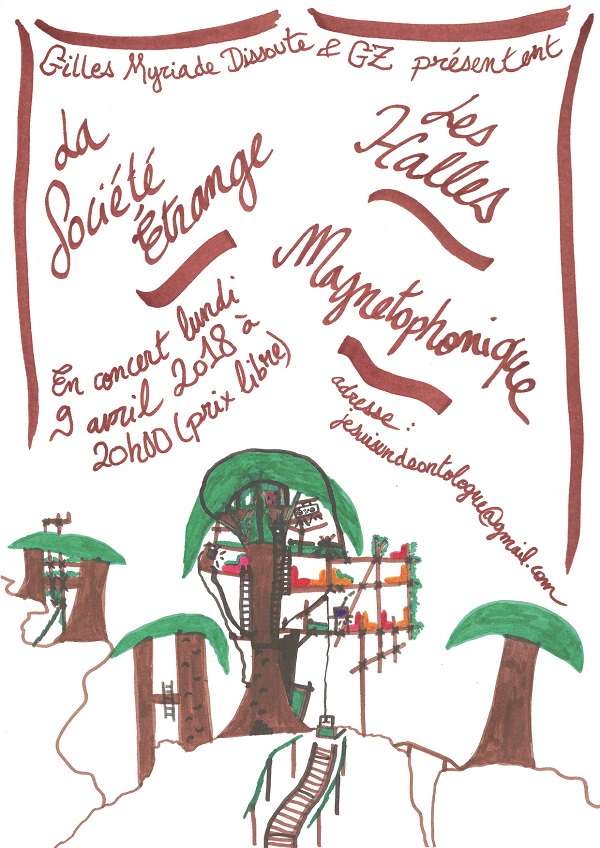 Gilles Myriade Dissoute & GZ présentent
La
Société
Étrange
Les
Halles
Magnetophonique
En concert lundi
9 avril 2018 à
20h00 (prix libre)
adresse :
jesuisundeontologue@gmail.com